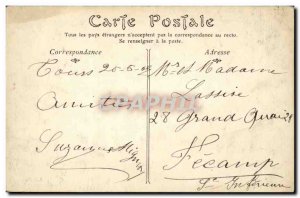 Carte Postale
Tous les pays étrangers n'acceptent pas la correspondance au recto.
Se renseigner à la poste.
Correspondance
Adresse
Tours 20-6-
Amitiés
Suzanne
Mr et Madame
Lassire
28 Grand Quai
Fécamp
Se Inférieure